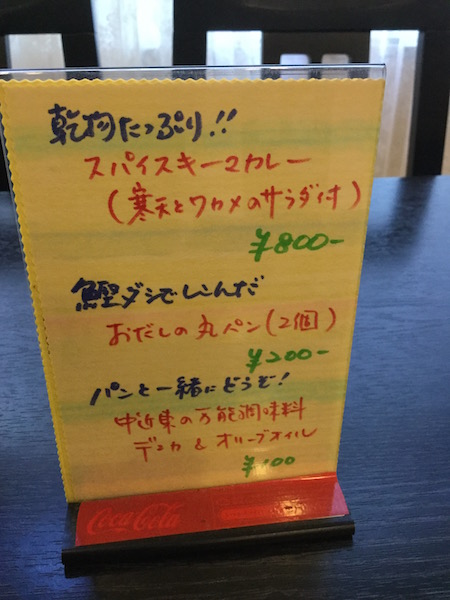 乾物たっぷり!!
スパイスキーマカレー
(寒天とワカメのサラダ付)
¥800-
鰹ダシでしこんだ
おだしの丸パン(2個)
¥200-
パンと一緒にどうぞ!
中近東の万能調味料
デュカ & オリーブオイル
¥100
Coca-Cola